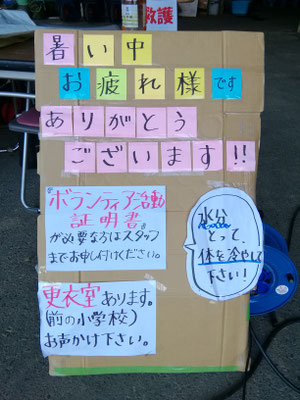 救護
暑い中
お疲れ様です
ありがとう
ございます!!
ボランティア活動
証明書
が必要ならばスタッフ
までお申し付けください。
水分
とって、
体を冷やして
下さい!
更衣室あります。
(前の小学校)
お声かけ下さい。